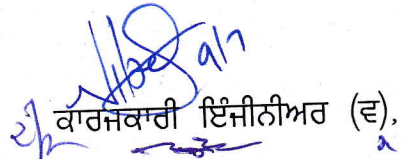 9/7
ਕਾਰਜਕਾਰੀ ਇੰਜੀਨੀਅਰ (ਵ),